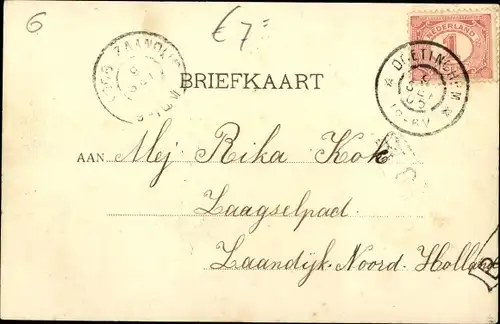 6
€ 7=
NEDERLAND
1
DOETINCHEM
BRIEFKAART
AAN Mej Rika Kok
Zaagselpad.
Zaandijk. Noord. Holland